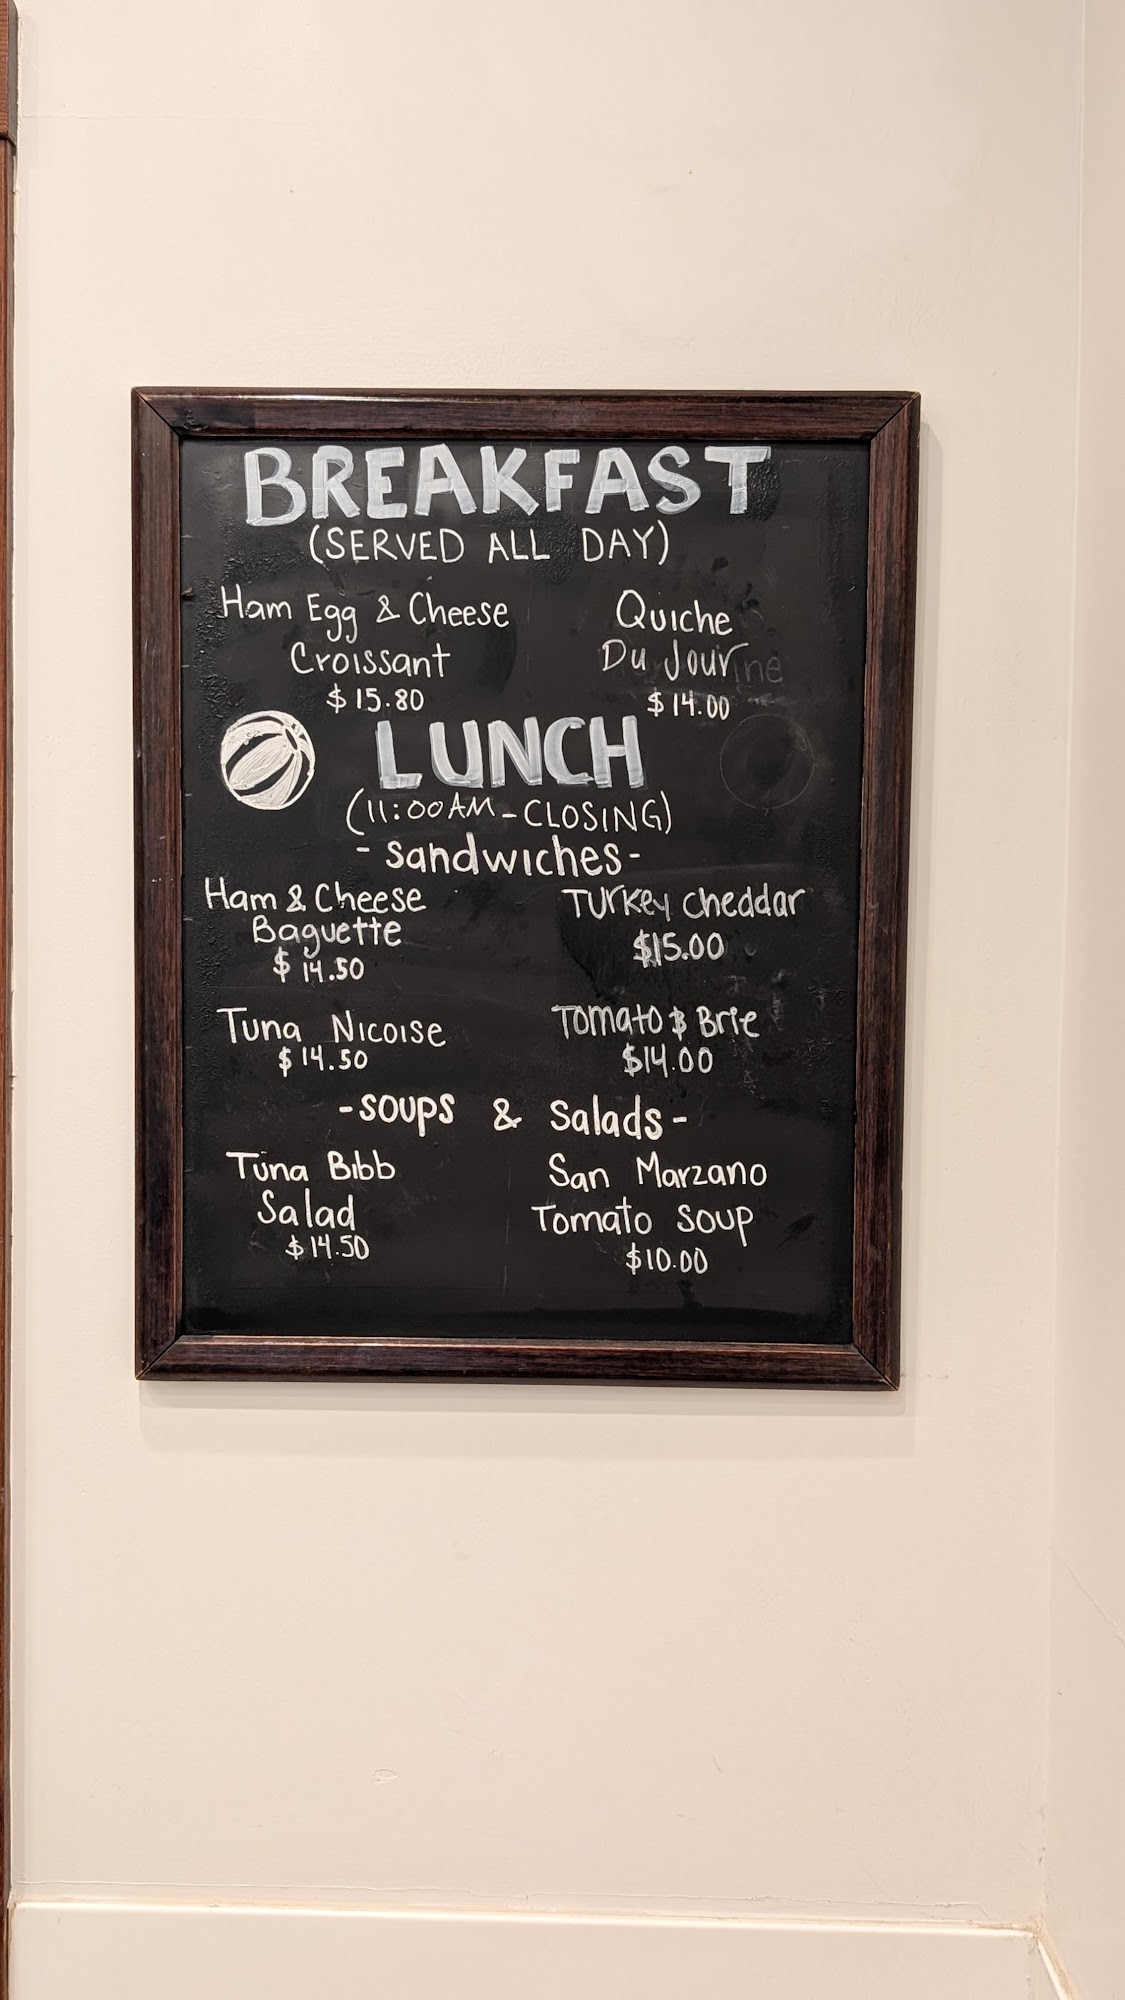 BREAKFAST
(SERVED ALL DAY)
Ham Egg & Cheese
Croissant
$15.80
Quiche
Du Jour
$14.00
LUNCH
(11:00AM-CLOSING)
-Sandwiches-
Ham & Cheese
Baguette
$14.50
Turkey cheddar
$15.00
Tuna Nicoise
$14.50
Tomato & Brie
$14.00
-Soups & Salads-
Tuna Bibb
Salad
$14.50
San Marzano
Tomato Soup
$10.00